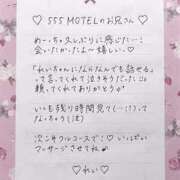 ♡ 555 MOTELのお兄さん ♡
めーっちゃ久しぶりに感じた…!
会いたかったよ〜嬉しい…♡
「れいちゃんになんでも話せる」
って言ってくれて泣きそうだった
頼ってくれてありがとう♡
いつも残り時間見て(…!?)って
なっちゃう(泣)
次こそフルコースで…♡いっぱい
マッサージさせてね
♡れい♡